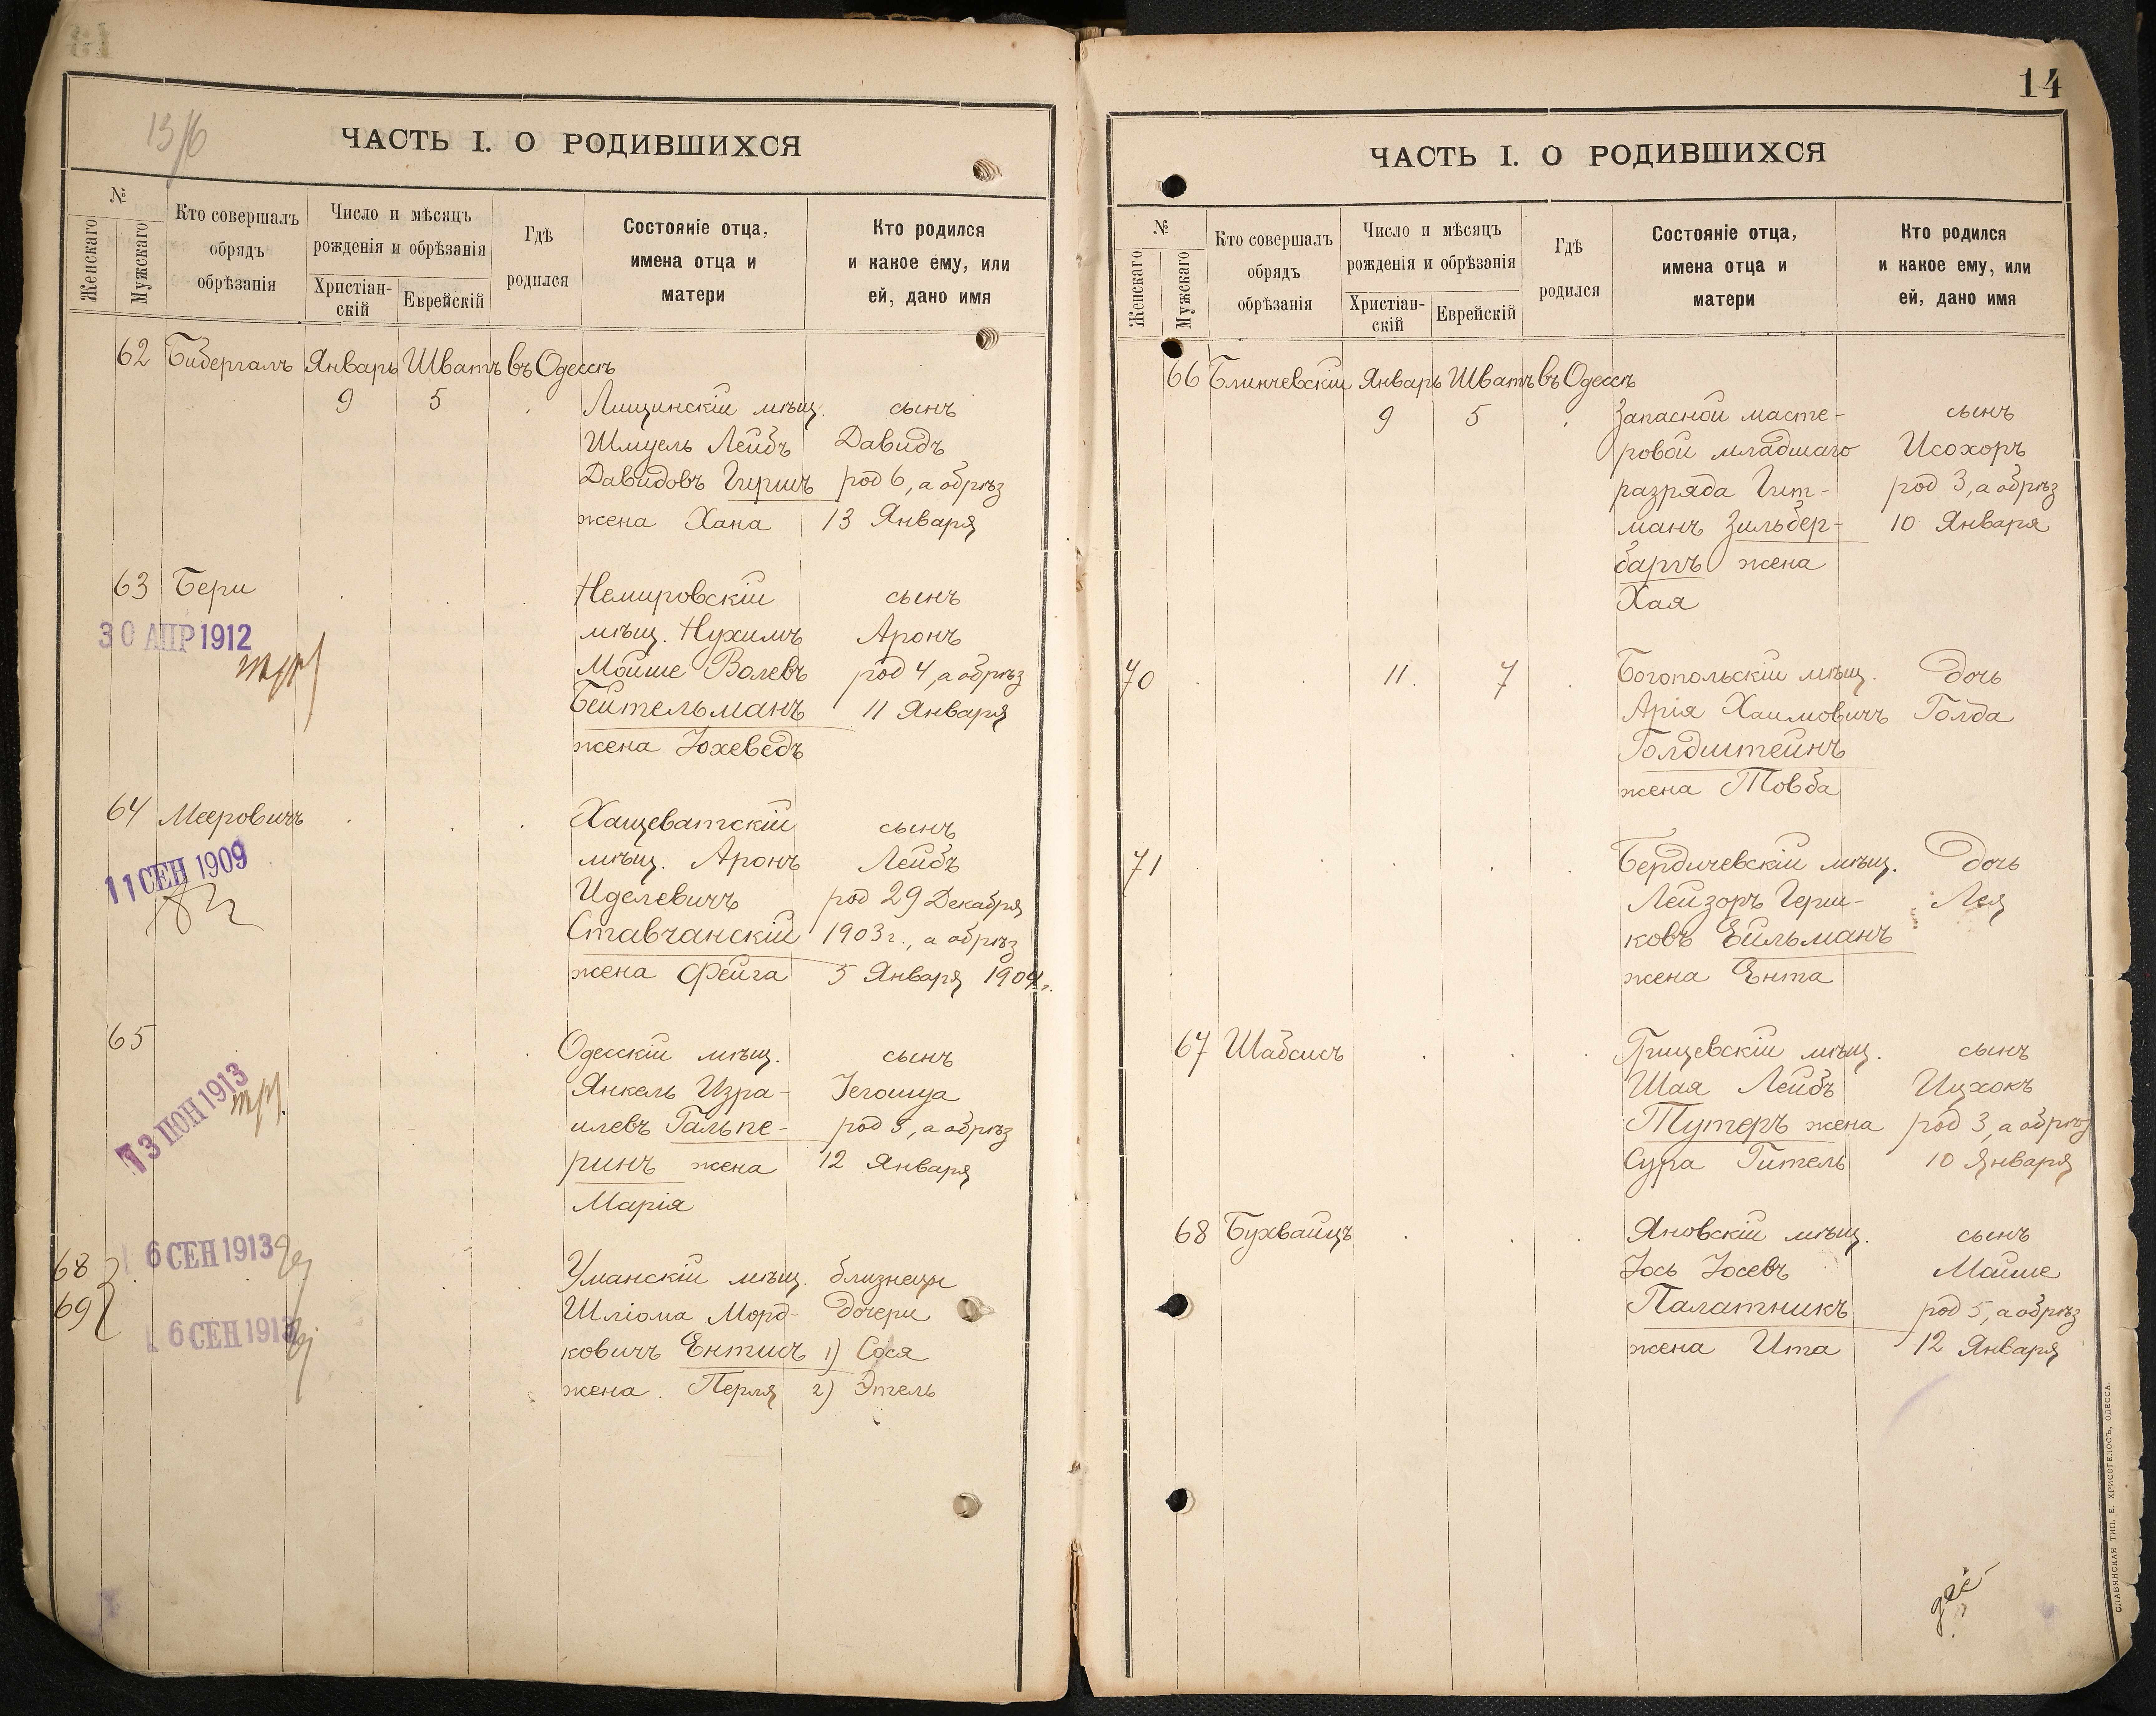 13/6
ЧАСТЬ I. О РОДИВШИХСЯ
№
Женскаго
Мужскаго
Кто совершалъ
обрядъ
обрѣзанія
Число и мѣсяцъ
рожденія и обрѣзанія
Христіан-
скій
Еврейскій
Гдѣ
родился
Состояніе отца,
имена отца и
матери
Кто родился
и какое ему, или
ей, дано имя
62 Бибергалъ Январь Шватъ въ Одессѣ
9 5 Лищинскій мѣщ. сынъ
Шмуель Лейбъ Давидъ
Давидовъ Гиршъ род 6, а обрѣз
жена Хана 13 Января
63 Бери Немировскій сынъ
30 АПР 1912
мѣщ. Нухимъ Аронъ
Мойше Волевъ род 4, а обрѣз
Бейтельманъ 11 Января
жена Юхеведъ
64 Мееровичъ Хащеватскій сынъ
мѣщ. Аронъ Лейбъ
11 СЕН 1909
Иделевичъ род 29 Декабря
Ставчанскій 1903 г., а обрѣз
жена Фейга 5 Января 1904 г.
65 Одесскій мѣщ. сынъ
13 ІЮН 1913
Янкель Изра- Іегошуа
илевъ Гальпе- род 5, а обрѣз
ринъ жена 12 Января
Марія
6 СЕН 1913
68 Уманскій мѣщ. близнецы
69 Шліома Морд- дочери
6 СЕН 1913
ковичъ Ентисъ 1) Сося
жена Перля 2) Этель
14
ЧАСТЬ I. О РОДИВШИХСЯ
№
Женскаго
Мужскаго
Кто совершалъ
обрядъ
обрѣзанія
Число и мѣсяцъ
рожденія и обрѣзанія
Христіан-
скій
Еврейскій
Гдѣ
родился
Состояніе отца,
имена отца и
матери
Кто родился
и какое ему, или
ей, дано имя
66 Блинчевскій Январь Шватъ въ Одессѣ
9 5 Запасной масте- сынъ
ровой младшаго Исохоръ
разряда Гит- род 3, а обрѣз
манъ Зильбер- 10 Января
баргъ жена
Хая
70 11. 7 Богопольскій мѣщ. дочь
Арія Хаимовичъ Голда
Голдштейнъ
жена Товба
71 Бердичевскій мѣщ. дочь
Лейзоръ Герш- Лея
ковъ Ейльманъ
жена Ента
67 Шабсисъ Грицевскій мѣщ. сынъ
Шая Лейбъ Ицхокъ
Тутеръ жена род 3, а обрѣз
Сура Гитель 10 Января
68 Бухвайцъ Яновскій мѣщ. сынъ
Іось Іосевъ Мойше
Палатникъ род 5, а обрѣз
жена Ита 12 Января
СЛАВЯНСКАЯ ТИП. Е. ХРИСОГЕЛОСЪ, ОДЕССА.